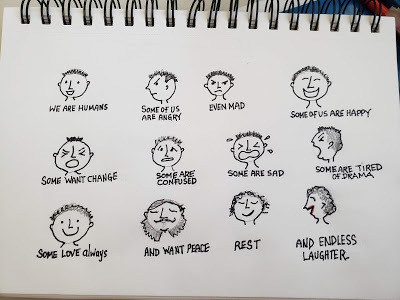 WE ARE HUMANS
SOME OF US
ARE ANGRY
EVEN MAD
SOME OF US ARE HAPPY
SOME WANT CHANGE
SOME ARE
CONFUSED
SOME ARE SAD
SOME ARE TIRED
OF DRAMA
SOME LOVE always
AND WANT PEACE
REST
AND ENDLESS
LAUGHTER.